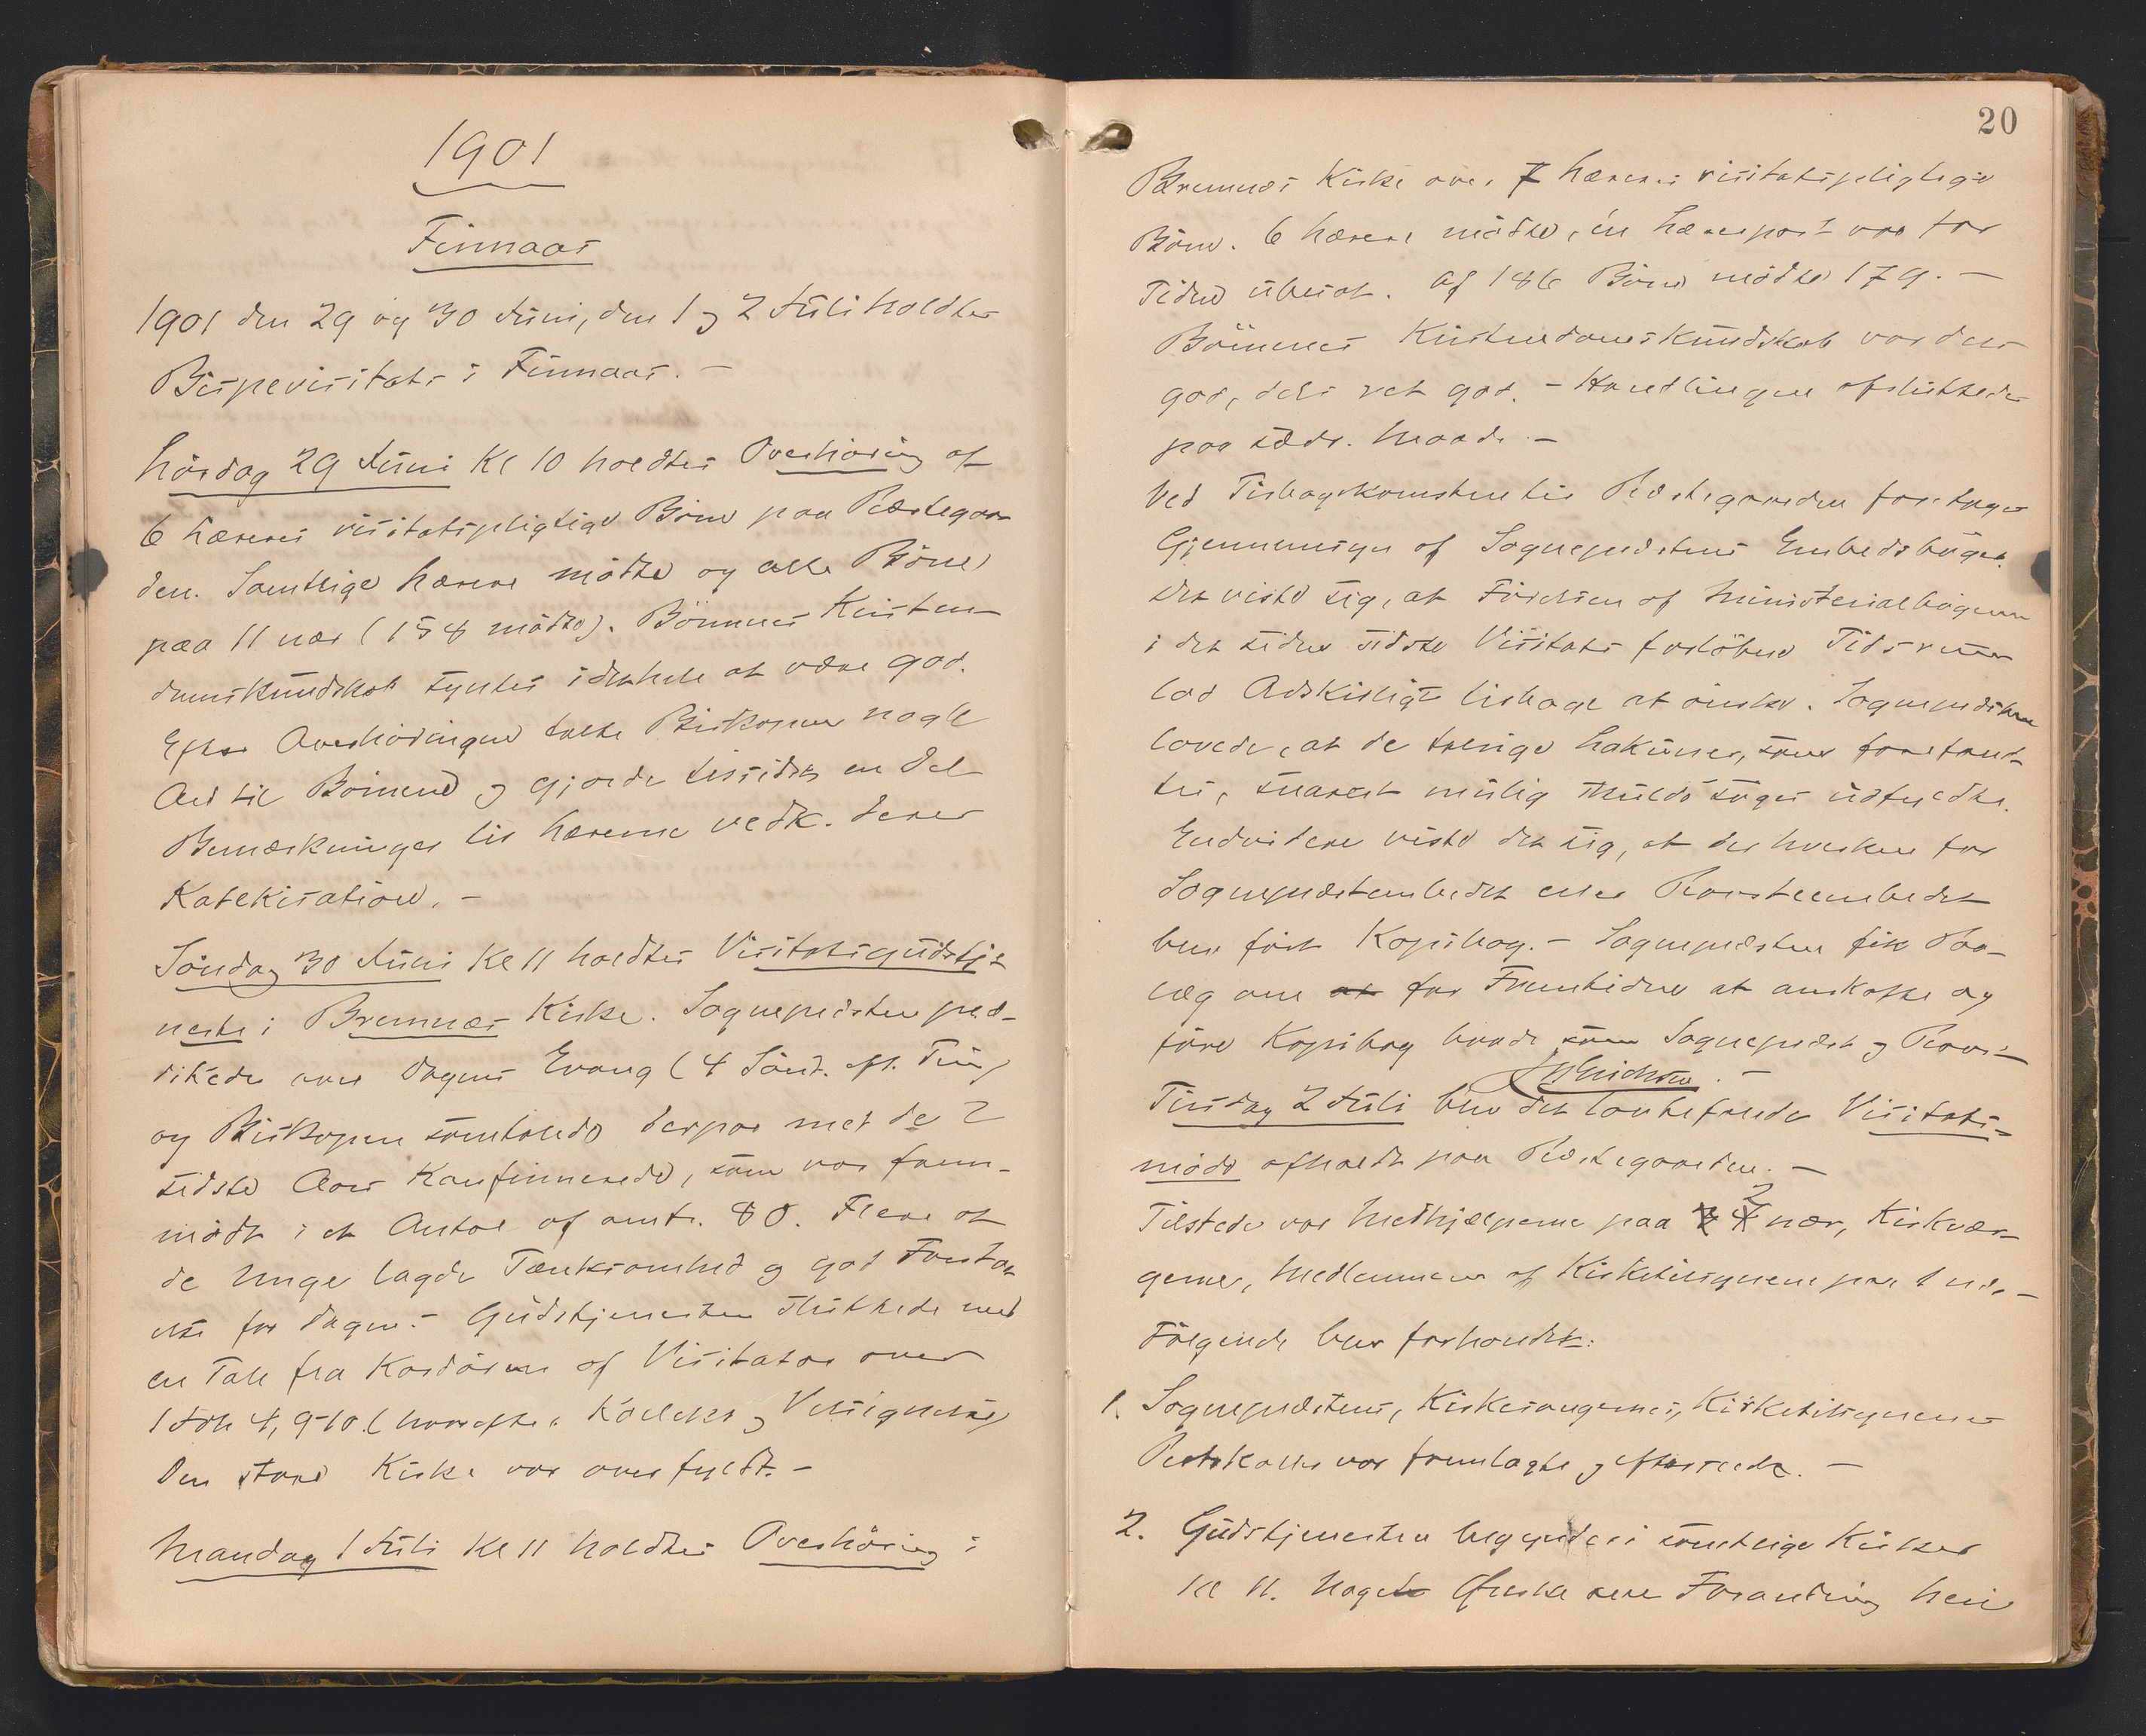 1901
Finnaas
1901 den 29 og 30 Juni, den 1 og 2 Juli holdtes
Bispevisitats i Finnaas. –
Lørdag 29 Juni Kl 10 holdtes Overhøring af
6 Læreres visitatspligtige Børn paa Præstegaar-
den. Samtlige Lærere mødte og alle Børn
paa 11 nær (154 mødte). Børnenes Kristen-
domskundskab syntes i det hele at være god.
Efter Overhøringen talte Biskopen nogle
Ord til Børnene og gjorde tilsidst en Del
Bemærkninger til Lærerne vedk. deres
Katekisation. –
Søndag 30 Juni Kl 11 holdtes Visitatsgudstje-
neste i Bremnæs Kirke. Sognepræsten præ-
dikede over Dagens Evang (4 Sønd. eft. Trin)
og Biskopen samtalede derpaa med de 2
sidste Aars Konfirmerede, som var frem-
mødt i et Antal af omtr. 80. Flere af
de Unge lagde Tænksomhed og god Forstaa-
else for Dagen. – Gudstjenesten sluttede med
en Tale fra Kordøren af Visitator over
1 Joh 4, 9-10. (hvorefter Kollekt og Velsignelse)
Den store Kirke var overfyldt. –
Mandag 1 Juli Kl 11 holdtes Overhøring i
20
Bremnæs Kirke over 7 Læreres visitatspligtige
Børn. 6 Lærere mødte, en Lærerpost var for
Tiden ubesat. Af 186 Børn mødte 179. –
Børnenes Kristendomskundskab var dels
god, dels ret god. – Handlingen afsluttedes
paa sædv. Maade. –
Ved Tilbagekomsten til Præstegaarden foretoges
Gjennemsyn af Sognepræstens Embedsbøger.
Det viste sig, at Førelsen af Ministerialbøgerne
i det siden sidste Visitats forløbne Tidsrum
lod Adskilligt tilbage at ønske. Sognepræsten
lovede, at de talrige Lakuner, som forefand-
tes, snarest mulig skulde søges udfyldte.
Endvidere viste det sig, at der hverken for
Sognepræstembedet eller Provsteembedet
blev ført Kopibog. – Sognepræsten fik Paa-
læg om at for Fremtiden at anskaffe og
føre Kopibog baade som Sognepræst og Provst
. –
Tirsdag 2 Juli blev det lovbefalede Visitats-
møde afholdt paa Præstegaarden. –
2
Tilstede var Medhjælperne paa 4 nær, Kirkevær-
gerne, Medlemmer af Kirketilsynene paa 1 nær –
Følgende blev forhandlet:
1. Sognepræstens, Kirkesangernes, Kirketilsynenes
Protokoller var fremlagte og eftersaaes. –
2. Gudstjenesten begynder i samtlige Kirker
Kl 11. Noget Ønske om Forandring heri